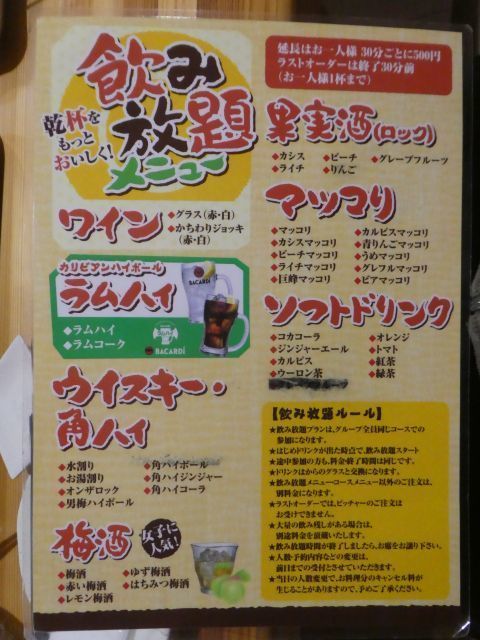 飲み
放題
メニュー
乾杯を
もっと
おいしく!
延長はお一人様 30分ごとに500円
ラストオーダーは終了30分前
(お一人様1杯まで)
果実酒(ロック)
◆カシス ◆ピーチ ◆グレープフルーツ
◆ライチ ◆りんご
ワイン
◆グラス(赤・白)
◆かちわりジョッキ
(赤・白)
マッコリ
◆マッコリ
◆カシスマッコリ
◆ピーチマッコリ
◆ライチマッコリ
◆巨峰マッコリ
◆カルピスマッコリ
◆青りんごマッコリ
◆うめマッコリ
◆グレフルマッコリ
◆ビアマッコリ
カリビアンハイボール
ラムハイ
◆ラムハイ
◆ラムコーク
BACARDI
BACARDI
ソフトドリンク
◆コカコーラ
◆ジンジャーエール
◆カルピス
◆ウーロン茶
◆オレンジ
◆トマト
◆紅茶
◆緑茶
ウイスキー・
角ハイ
◆水割り
◆お湯割り
◆オンザロック
◆男梅ハイボール
◆角ハイボール
◆角ハイジンジャー
◆角ハイコーラ
梅酒
女子に
人気!
◆梅酒
◆赤い梅酒
◆レモン梅酒
◆ゆず梅酒
◆はちみつ梅酒
【飲み放題ルール】
★飲み放題プランは、グループ全員同じコースでの
参加になります。
★はじめドリンクが出た時点で、飲み放題スタート
★途中参加の方も、料金・終了時間は同じです。
★ドリンクはからのグラスと交換になります。
★飲み放題メニュー・コースメニュー以外のご注文は、
別料金になります。
★ラストオーダーでは、ピッチャーのご注文は
お受けできません。
★大量の飲み残しがある場合は、
別途料金を頂戴いたします。
★飲み放題時間が終了しましたら、お席をお譲り下さい。
★人数・予約内容などの変更は、
前日までの受付とさせていただきます。
★当日の人数変更で、お料理分のキャンセル料が
生じることがありますので、予めご了承ください。